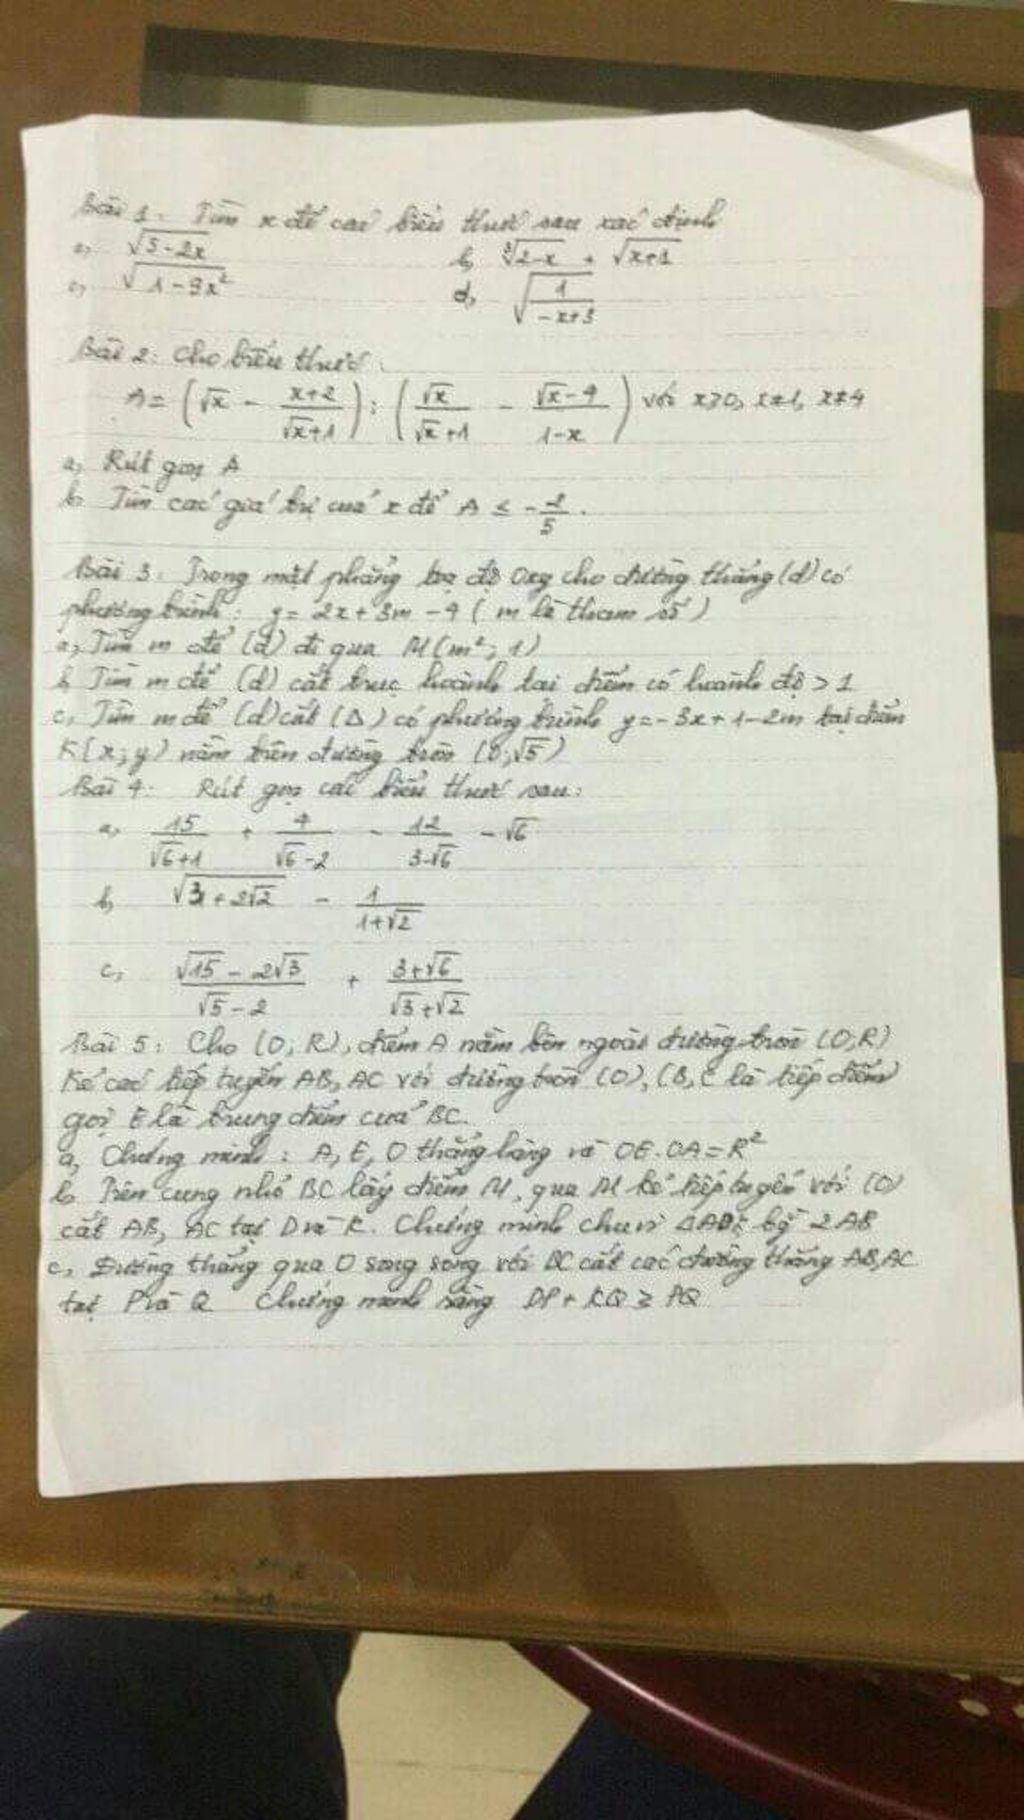 Bài 1. Tìm x để các biểu thức sau xác định
a, √(5-2x) b, ∛(2-x) + √(x+1)
c, √(1-9x²) d, √(1/(-x+3))
Bài 2: Cho biểu thức:
A = (√x - (x+2)/(√x+1)) : (√x/(√x+1) - (√x-4)/(1-x)) với x≥0, x≠1, x≠4
a, Rút gọn A
b, Tìm các giá trị của x để A ≤ -2/5.
Bài 3: Trong mặt phẳng toạ độ Oxy cho đường thẳng (d) có
phương trình: y = 2x + 3m - 4 (m là tham số)
a, Tìm m để (d) đi qua M(m²; 1)
b, Tìm m để (d) cắt trục hoành tại điểm có hoành độ > 1
c, Tìm m để (d) cắt (Δ) có phương trình y = -3x + 1 - 2m tại điểm
K(x; y) nằm trên đường tròn (O; √5)
Bài 4: Rút gọn các biểu thức sau:
a, 15/(√6+1) + 4/(√6-2) - 12/(3-√6) - √6
b, √(3+2√2) - 1/(1+√2)
c, (√15-2√3)/(√5-2) + (3+√6)/(√3+√2)
Bài 5: Cho (O, R), điểm A nằm bên ngoài đường tròn (O, R)
Kẻ các tiếp tuyến AB, AC với đường tròn (O), (B, C là tiếp điểm)
gọi E là trung điểm của BC.
a, Chứng minh: A, E, O thẳng hàng và OE.OA = R²
b, Trên cung nhỏ BC lấy điểm M, qua M kẻ tiếp tuyến với (O)
cắt AB, AC tại D và K. Chứng minh chu vi ΔADK bg 2AB
c, Đường thẳng qua O song song với BC cắt các đường thẳng AB, AC
tại P và Q. Chứng minh rằng DP + KQ ≥ PQ